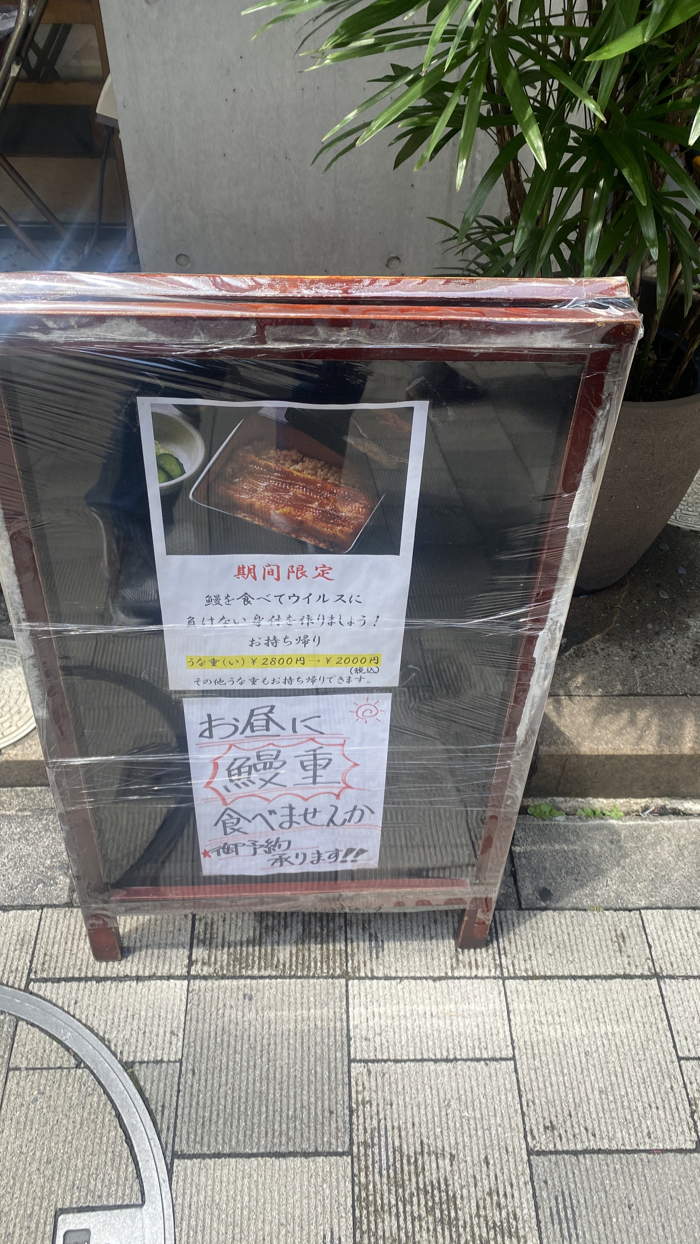 期間限定
鰻を食べてウイルスに
負けない身体を作りましょう！
お持ち帰り
うな重(い)￥2800円→￥2000円
(税込)
その他うな重もお持ち帰りできます。
お昼に
鰻重
食べませんか
★御予約
承ります!!